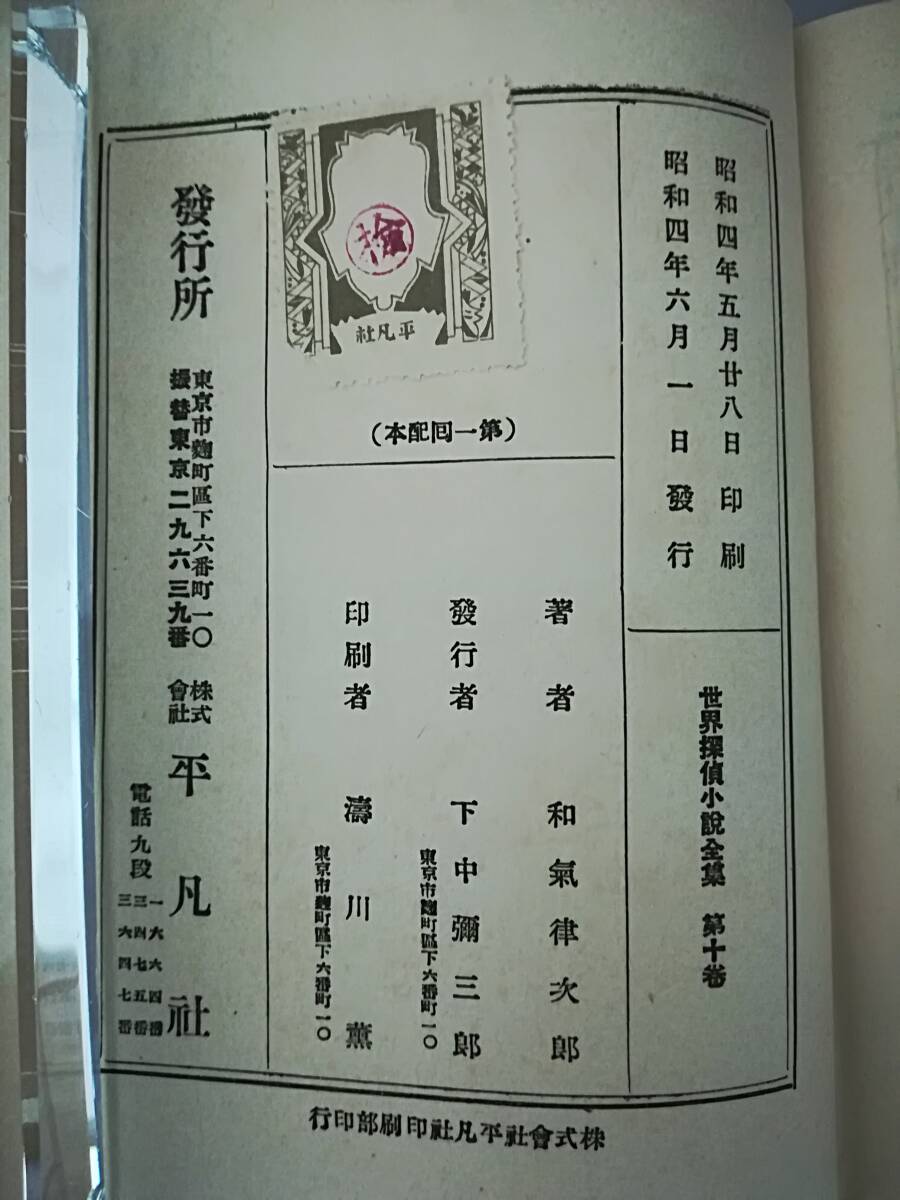 昭和四年五月廿八日印刷
昭和四年六月一日發行
世界探偵小說全集 第十卷
平凡社
(第一囘配本)
著者 和氣律次郎
發行者 下中彌三郎
東京市麴町區下六番町一〇
印刷者 濤川薰
東京市麴町區下六番町一〇
發行所
東京市麴町區下六番町一〇
振替東京二九六三九番
株式會社 平凡社
電話九段
一六六四番
三四七五番
三六四七番
株式會社平凡社印刷部印行